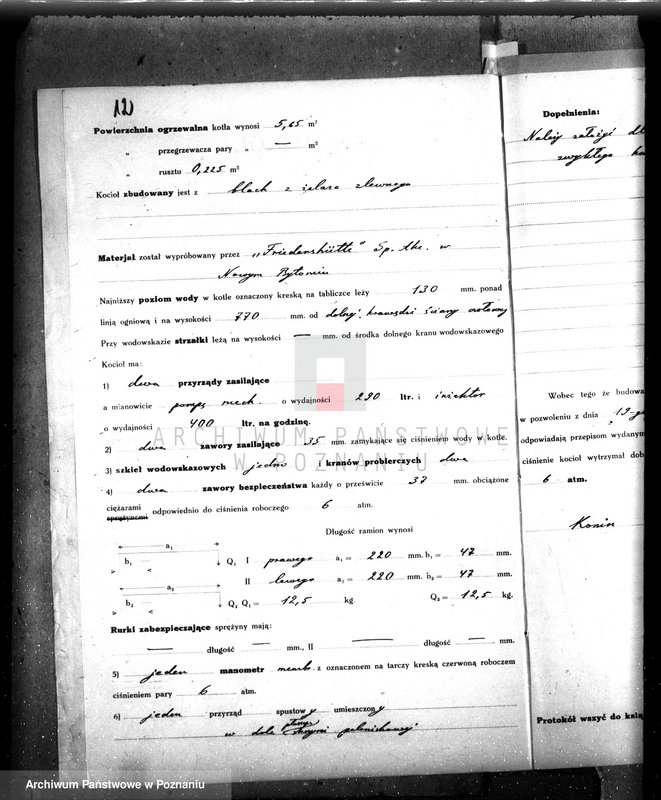 12
Powierzchnia ogrzewalna kotła wynosi 5,65 m²
„ przegrzewacza pary „ — m²
„ rusztu 0,225 m²
Kocioł zbudowany jest z blach z żelaza zlewnego
Materjał został wypróbowany przez „Friedenshütte" Sp. Akc. w
Nowym Bytomiu
Najniższy poziom wody w kotle oznaczony kreską na tabliczce leży 130 mm. ponad
linją ogniową i na wysokości 770 mm. od dolnej krawędzi ściany
Przy wodowskazie strzałki leżą na wysokości — mm. od środka dolnego kranu wodowskazowego
Kocioł ma:
1) dwa przyrządy zasilające
a mianowicie pompę mech. o wydajności 290 ltr. i iniektor
o wydajności 400 ltr. na godzinę.
2) dwa zawory zasilające 35 mm. zamykające się ciśnieniem wody w kotle.
3) szkieł wodowskazowych jedno i kranów probierczych dwa
4) dwa zawory bezpieczeństwa każdy o prześwicie 37 mm. obciążone
ciężarami
sprężynami odpowiednio do ciśnienia roboczego 6 atm.
Długość ramion wynosi
a₁
b₁ Q₁ I prawego a₁ = 220 mm. b₁ = 47 mm.
a₂ II lewego a₂ = 220 mm. b₂ = 47 mm.
b₂ Q₂ Q₁ = 12,5 kg. Q₂ = 12,5 kg.
Rurki zabezpieczające sprężyny mają:
— długość — mm., II — długość — mm.
5) jeden manometr membr. z oznaczonem na tarczy kreską czerwoną roboczem
ciśnieniem pary 6 atm.
6) jeden przyrząd spustowy umieszczony
w dole skrzyni paleniskowej
Dopełnienia:
Należy założyć
zwykłego
Wobec tego że budowa
w pozwoleniu z dnia 19-go
odpowiadają przepisom wydanym
ciśnienie kocioł wytrzymał dob
6 atm.
Konin
Protokół wszyć do ksią
ARCHIWUM PAŃSTWOWE
W POZNANIU
Archiwum Państwowe w Poznaniu